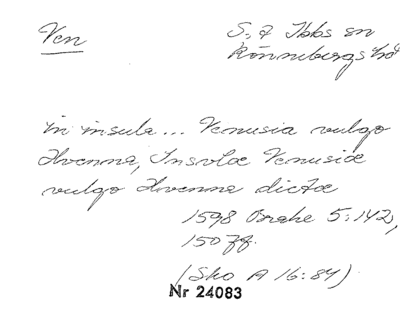 Ven
S:t Ibbs sn
Rönnebergs hd
in insula... Venusia vulgo
Hvenna, Insvlæ Venusiæ
vulgo Hvenna dictæ
1598 Brahe 5:142,
150 ff.
(Sko A 16:84)
Nr 24083